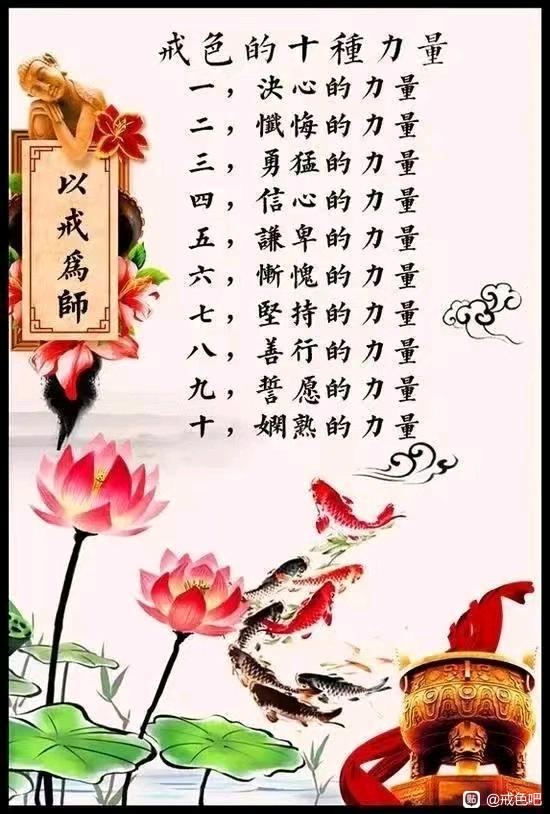 戒色的十種力量
一，決心的力量
二，懺悔的力量
三，勇猛的力量
四，信心的力量
五，謙卑的力量
六，慚愧的力量
七，堅持的力量
八，善行的力量
九，誓愿的力量
十，嫻熟的力量
以戒為師
贴 @戒色吧